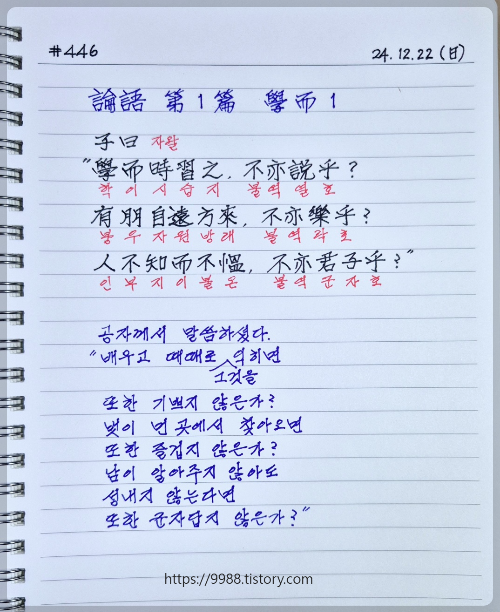 #446
24.12.22 (日)
論語 第1篇 學而 1
子曰 자왈
"學而時習之, 不亦說乎?
학이시습지 불역열호
有朋自遠方來, 不亦樂乎?
붕우자원방래 불역락호
人不知而不慍, 不亦君子乎?"
인부지이불온 불역군자호
공자께서 말씀하셨다.
"배우고 때때로 익히면
그것을
또한 기쁘지 않은가?
벗이 먼 곳에서 찾아오면
또한 즐겁지 않은가?
남이 알아주지 않아도
성내지 않는다면
또한 군자답지 않은가?"
https://9988.tistory.com